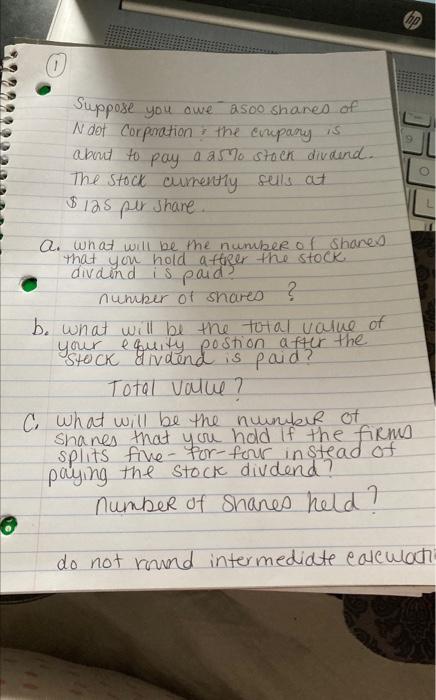 hp
1
Suppose you owe 2500 shares of
Ndot Corporation & the company is
about to pay a 25% stock dividend.
The stock currently sells at
$125 per share.
a. what will be the number of shares
that you hold after the stock
divdend is paid?
number of shares ?
b. what will be the total value of
your equity postion after the
stock divdend is paid?
Total value?
C. what will be the number of
shares that you hold if the firms
splits five-for-four instead of
paying the stock divdend?
number of shares held?
do not round intermediate calculati
9
O
L